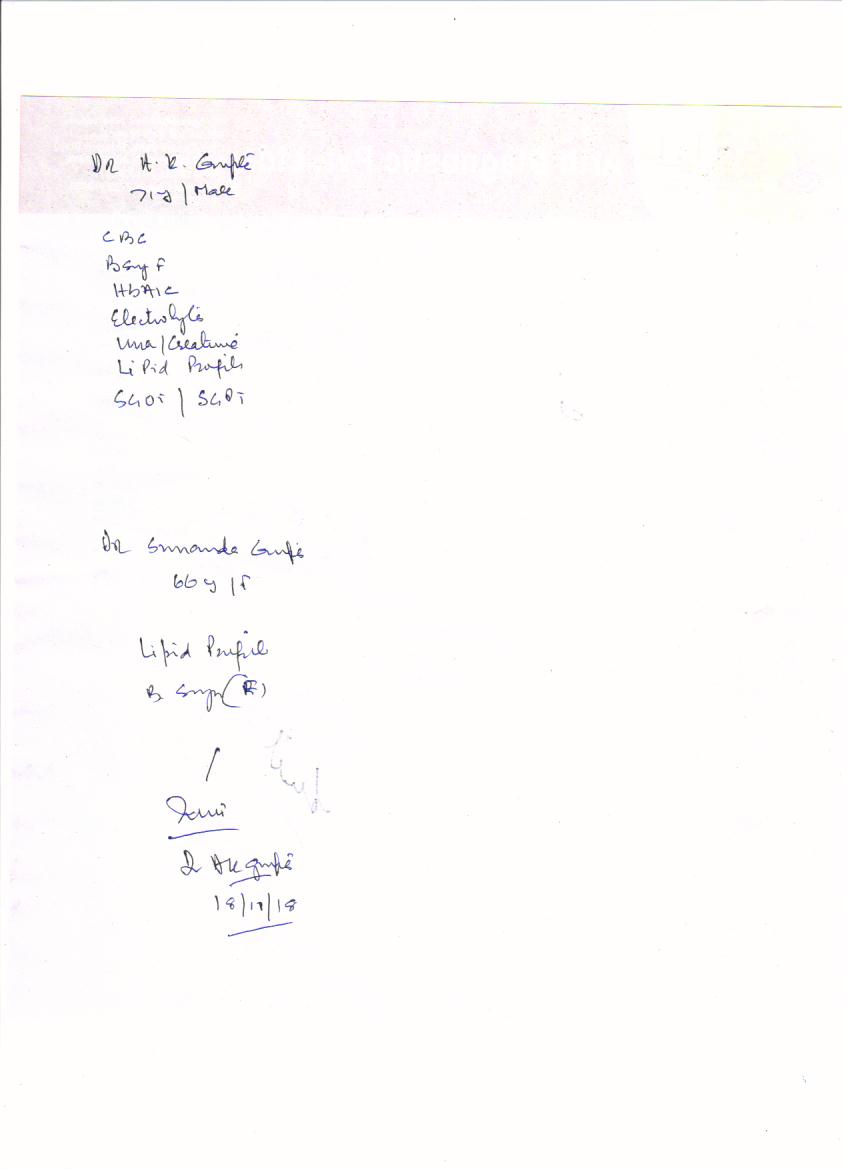 DR A. K. Gupta
71 y / Male
CBC
B Sug F
HbA1c
Electrolytes
Urea / Creatinine
Lipid Profile
SGOT / SGPT
DR Sunanda Gupta
66 y / F
Lipid Profile
B Sugar (F)
Dr AK Gupta
18/11/18